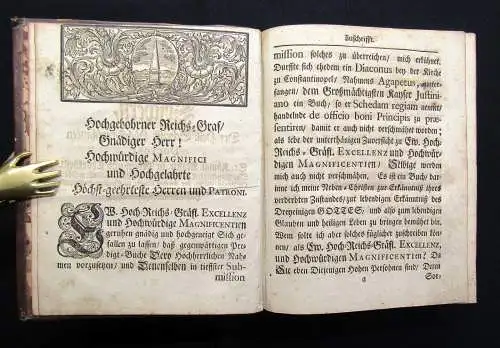 Hochgebohrner Reichs-Graf/
Gnädiger Herr!
Hochwürdige MAGNIFICI
und Hochgelahrte
Höchst-geehrteste Herren und PATRONI.
EW. Hoch-Reichs-Gräfl. EXCELLENZ
und Hochwürdige MAGNIFICENTIEN
geruhen gnädig und hochgeneigt Sich ge-
fallen zu lassen/ daß gegenwärtigen Pre-
digt-Buche Dero Hochherrlichen Nah-
men vorzusetzen/ und Denenselben in tieffster Sub-
mission
Zuschrifft.
mission solches zu überreichen/ mich erkühnet.
Durffte sich ehedem ein Diaconus bey der Kirche
zu Constantinopel/ Nahmens Agapetus, unter-
fangen/ dem Großmächtigsten Kayser Justini-
ano ein Buch/ so er Schedam regiam nennet/
handelnde de officio boni Principis zu præ-
sentiren/ damit er auch nicht verschmähet worden;
als lebe der unterthänigen Zuversicht zu Ew. Hoch-
Reichs-Gräfl. EXCELLENZ und Hochwür-
digen MAGNIFICENTIEN/ Selbige werden
mich auch nicht verschmähen. Es ist ein Buch/ dar-
inne ich meine Neben-Christen zur Erkäntniß ihres
verderbten Zustandes/ zur lebendigen Erkäntniß des
Dreyeinigen GOTTES, und also zum lebendigen
Glauben und heiligen Leben zu bringen bemühet bin.
Wem solte ich also solches füglicher zuschreiben kön-
nen/ als Ew. Hoch-Reichs-Gräfl. EXCELLENZ,
und Hochwürdigen MAGNIFICENTIEN? Da
Sie eben Diejenigen Hohen Personen sind/ Denen
a